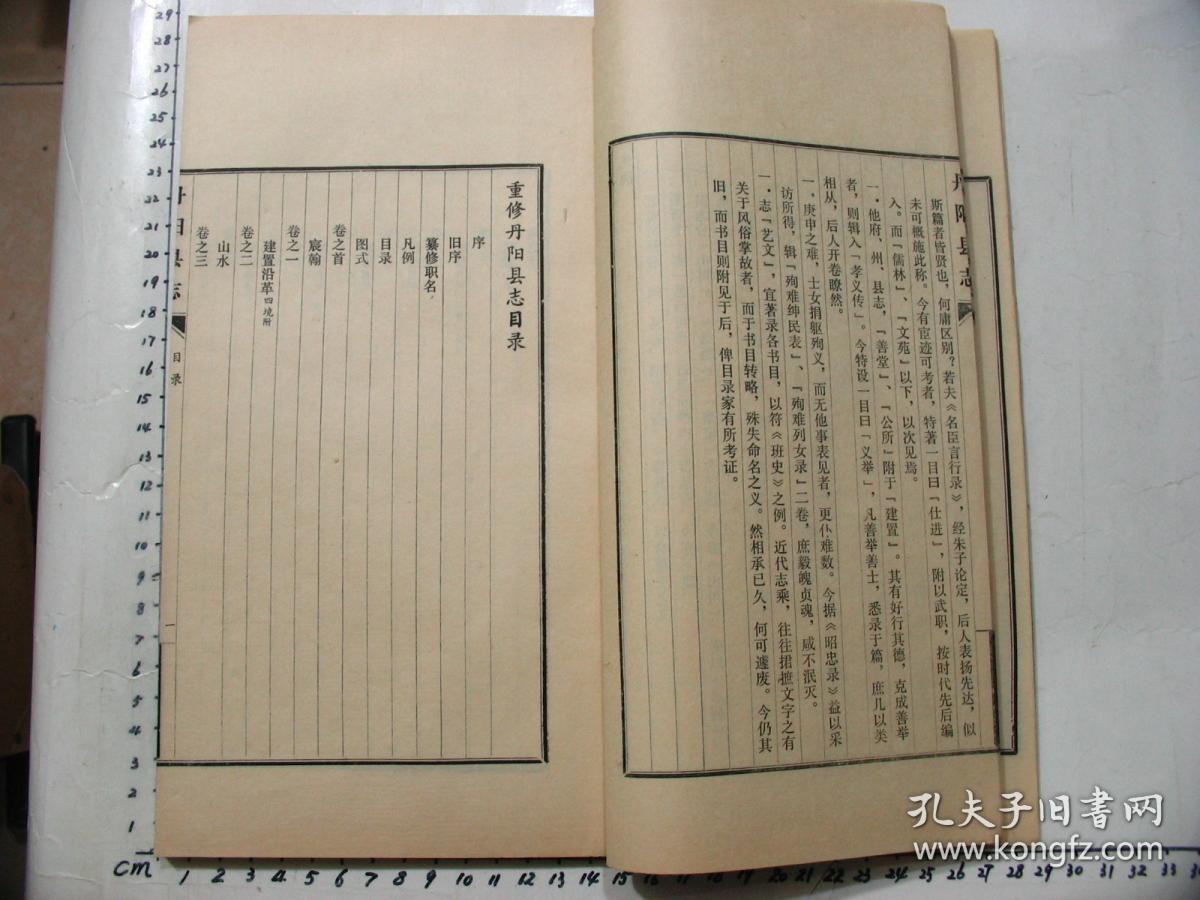 丹阳县志
斯篇者皆贤也，何庸区别？若夫《名臣言行录》，经朱子论定，后人表扬先达，似
未可概施此称。今有宦迹可考者，特著一目曰「仕进」，附以武职，按时代先后编
入。而「儒林」、「文苑」以下，以次见焉。
一．他府、州、县志，「善堂」、「公所」附于「建置」。其有好行其德，克成善举
者，则辑入「孝义传」。今特设一目曰「义举」，凡善举善士，悉录于篇，庶几以类
相从，后人开卷瞭然。
一．庚申之难，士女捐躯殉义，而无他事表见者，更仆难数。今据《昭忠录》益以采
访所得，辑「殉难绅民表」、「殉难列女录」二卷，庶毅魄贞魂，咸不泯灭。
一．志「艺文」，宜著录各书目，以符《班史》之例。近代志乘，往往捃摭文字之有
关于风俗掌故者，而于书目转略，殊失命名之义。然相承已久，何可遽废。今仍其
旧，而书目则附见于后，俾目录家有所考证。
重修丹阳县志目录
序
旧序
纂修职名
凡例
目录
图式
卷之首
宸翰
卷之一
建置沿革四境附
卷之二
山水
卷之三
丹阳县志
目录
一
29
28
27
26
25
24
23
22
21
20
19
18
17
16
15
14
13
12
11
10
9
8
7
6
5
4
3
2
1
cm 1 2 3 4 5 6 7 8 9 10 11 12 13 14 15 16 17 18 19 20 21 22 23 24 25 26 27 28 29 30 31 32 33
孔夫子旧书网
www.kongfz.com